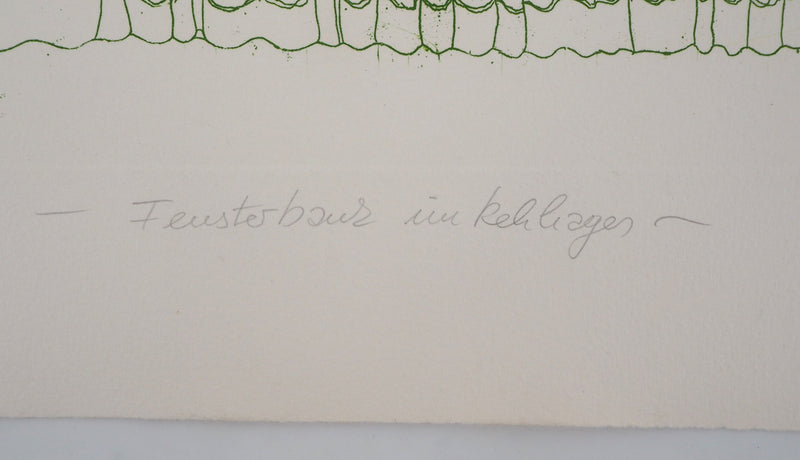 — Fensterbank im Kehlhagen —